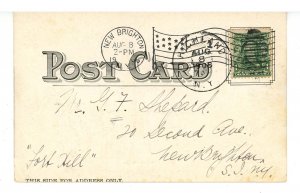 NEW BRIGHTON
AUG 8
2-PM
N.Y.
AUG
8
POST CARD
Mr. G. F. Shepard.
20 Second Ave.
"Fort Hill"
New Brighton
S. I. N.Y.
THIS SIDE FOR ADDRESS ONLY.